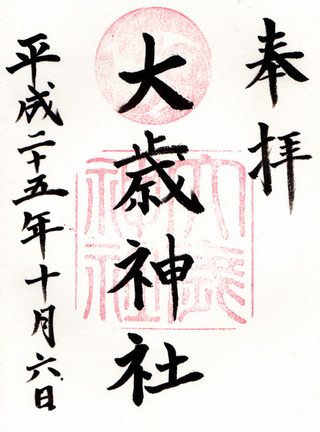 奉拝
大歳神社
平成二十五年十月六日
大歳神社